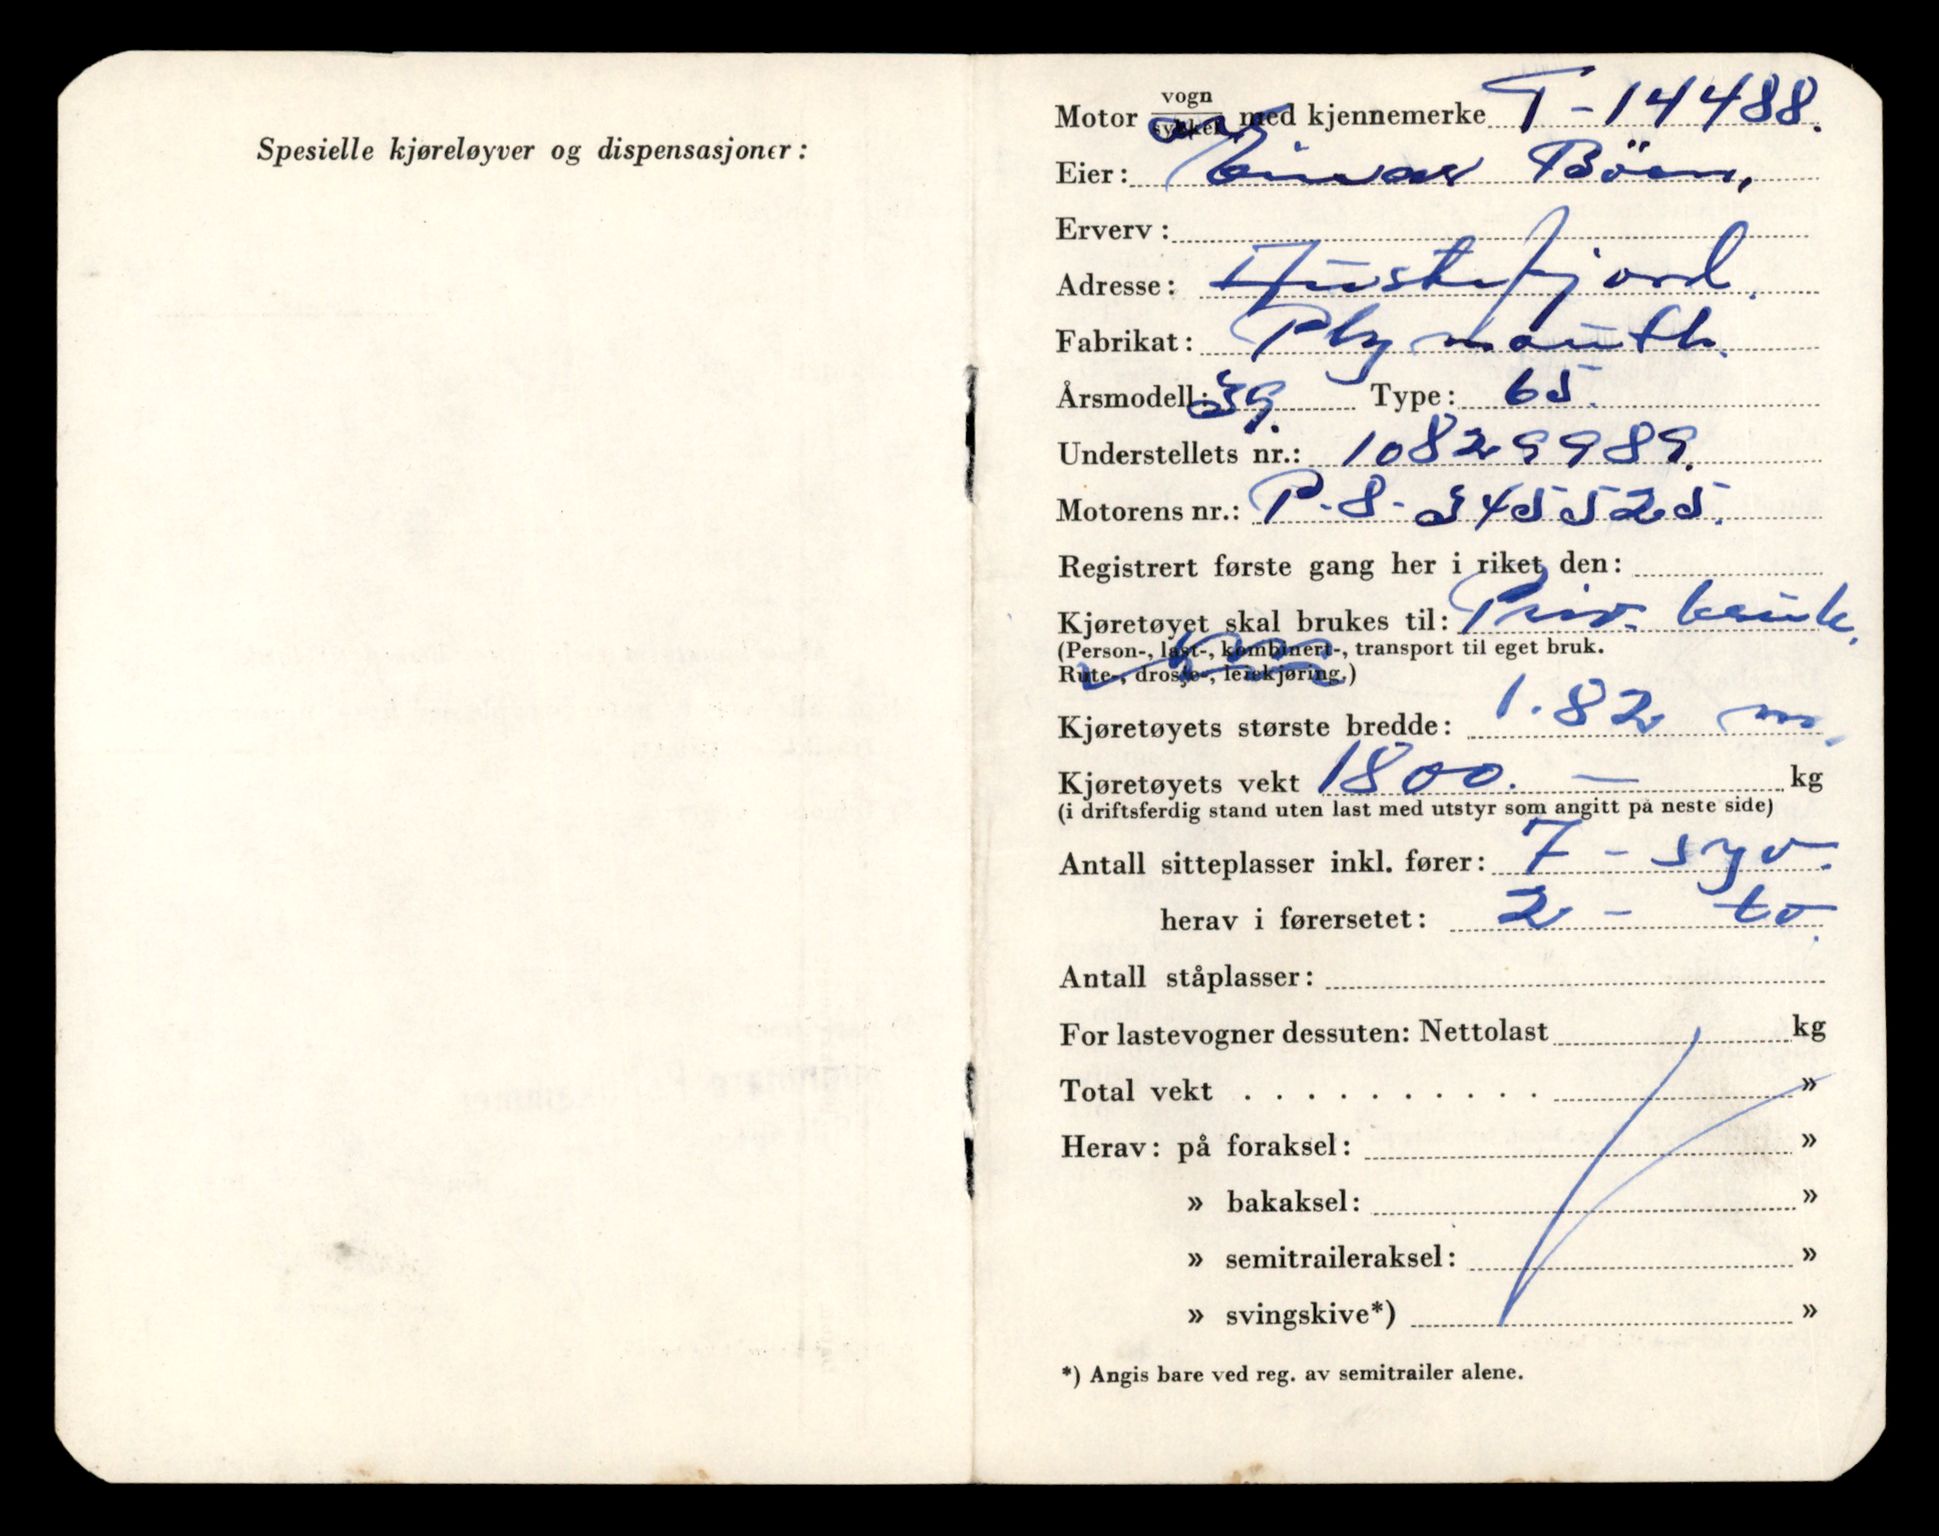 Spesielle kjøreløyver og dispensasjoner:
Motor vogn/sykkel med kjennemerke T-14488.
Eier: Einar Böen,
Erverv:
Adresse: Hustefjord.
Fabrikat: Plymouth.
Årsmodell: 39. Type: 65.
Understellets nr.: 10829989.
Motorens nr.: P.8-345525.
Registrert første gang her i riket den:
Kjøretøyet skal brukes til: Priv. bruk.
(Person-, last-, kombinert-, transport til eget bruk.
Rute-, drosje-, leiekjøring.)
Kjøretøyets største bredde: 1.82 m.
Kjøretøyets vekt 1800. — kg
(i driftsferdig stand uten last med utstyr som angitt på neste side)
Antall sitteplasser inkl. fører: 7 - syv.
herav i førersetet: 2 - to.
Antall ståplasser:
For lastevogner dessuten: Nettolast kg
Total vekt . . . . . . . . . . . »
Herav: på foraksel: »
» bakaksel: »
» semitraileraksel: »
» svingskive*) »
*) Angis bare ved reg. av semitrailer alene.